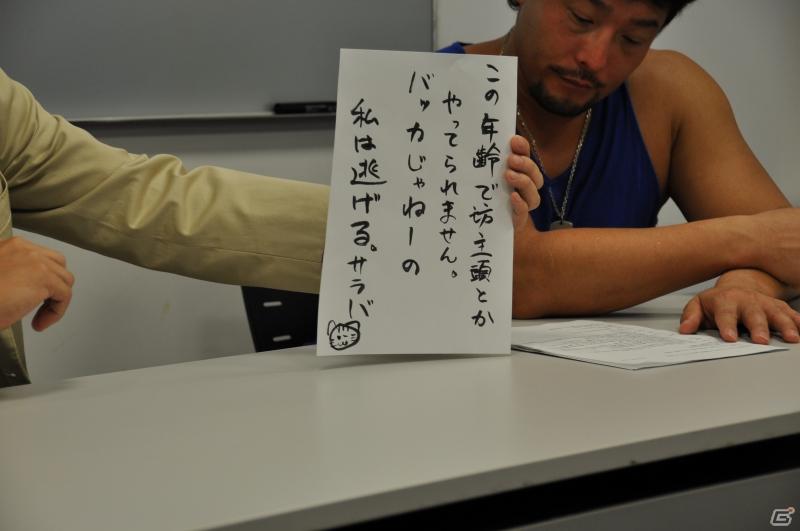 この年齢で坊主頭とか
やってられません。
バッカじゃねーの
私は逃げる。サラバ